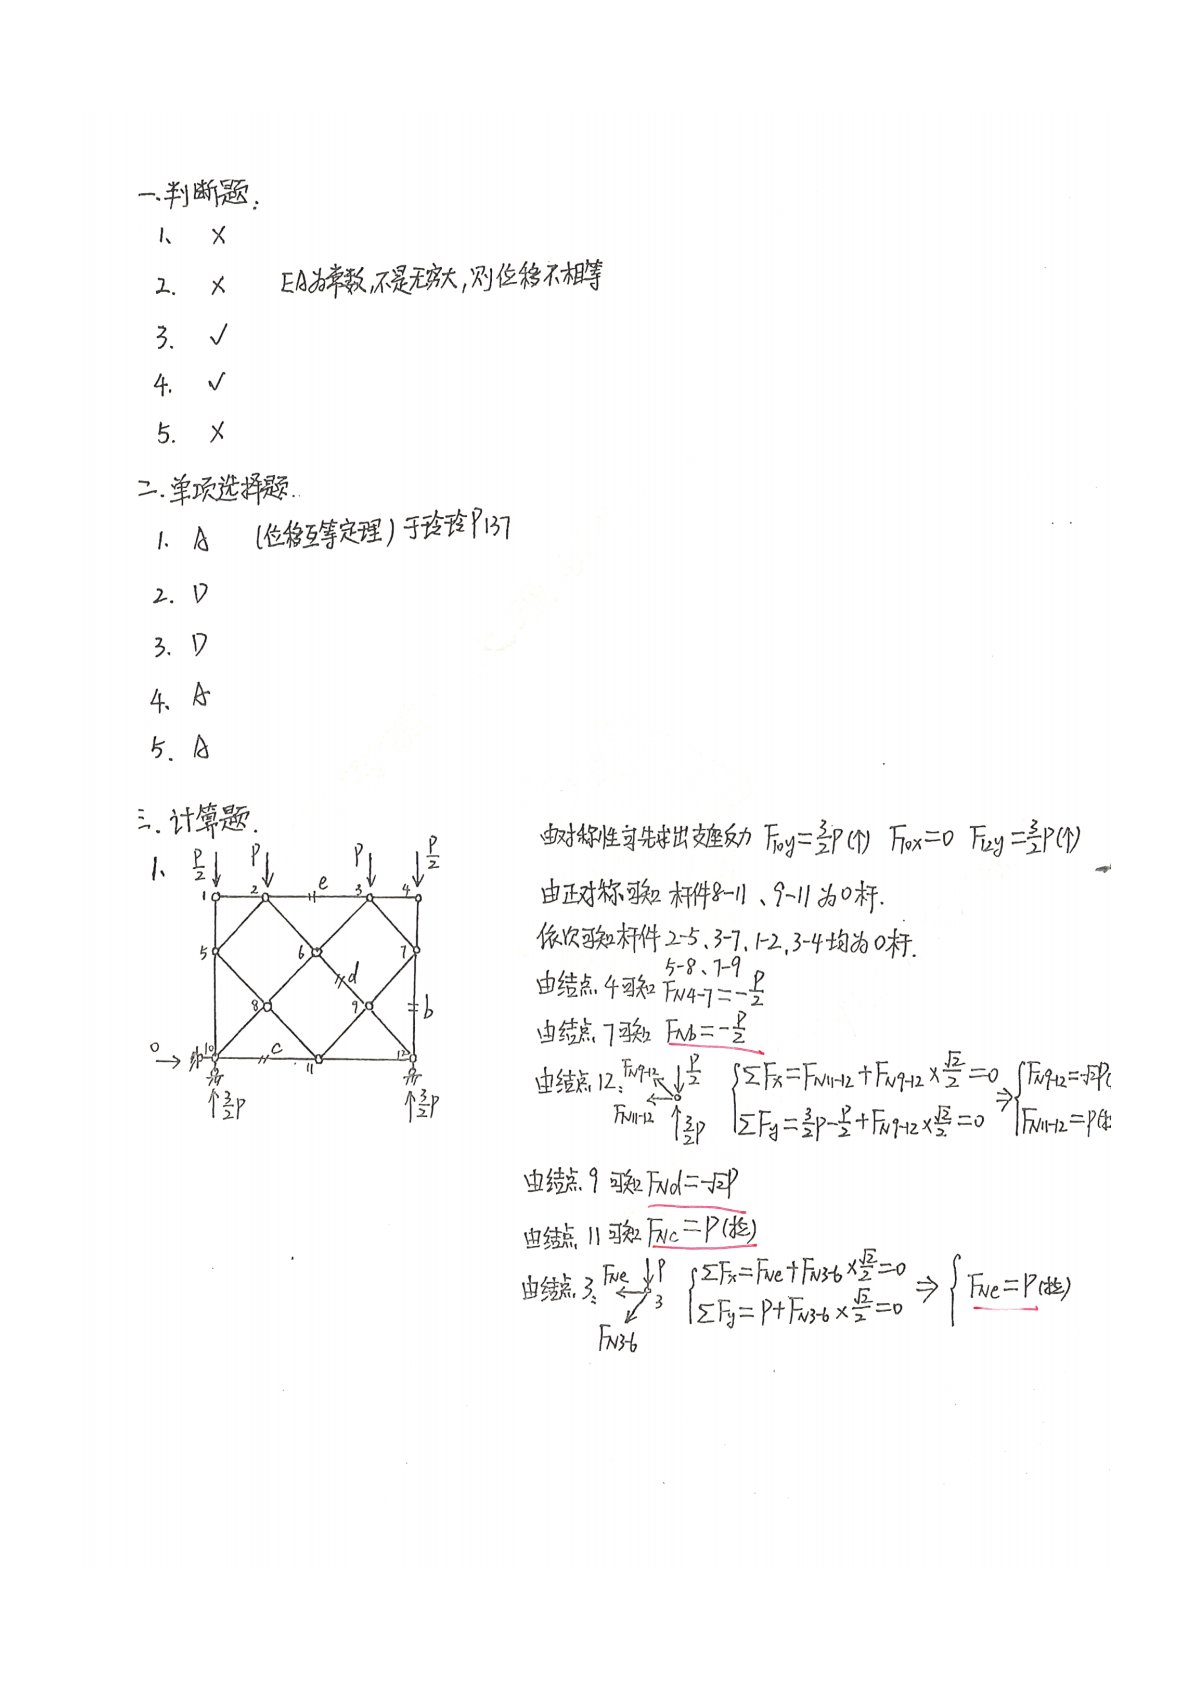 一.判断题.
1. ×
2. × EA为常数,不是无穷大,则位移不相等
3. ✓
4. ✓
5. ×
二.单项选择题.
1. A (位移互等定理) 于玲玲P137
2. D
3. D
4. A
5. A
三.计算题.
1. P/2 P P P/2
1 2 e 3 4
5 6 7
d
8 9 b
0 → 10 c 11 12
↑3/2P ↑3/2P
由对称性可先求出支座反力 F10y=3/2P(↑) F10x=0 F12y=3/2P(↑)
由正对称可知 杆件8-11、9-11为0杆.
依次可知杆件2-5、3-7、1-2、3-4均为0杆.
5-8、7-9
由结点4可知 FN4-7=-P/2
由结点7可知 FNb=-P/2
由结点12: FN9-12 P/2 FN11-12 3/2P { ΣFx=FN11-12+FN9-12×√2/2=0 ⇒ { FN9-12=-√2P(
ΣFy=3/2P-P/2+FN9-12×√2/2=0 FN11-12=P(拉
由结点9可知 FNd=-√2P
由结点11可知 FNc=P(拉)
由结点3: FNe P 3 FN3-6 { ΣFx=FNe+FN3-6×√2/2=0 ⇒ { FNe=P(拉)
ΣFy=P+FN3-6×√2/2=0